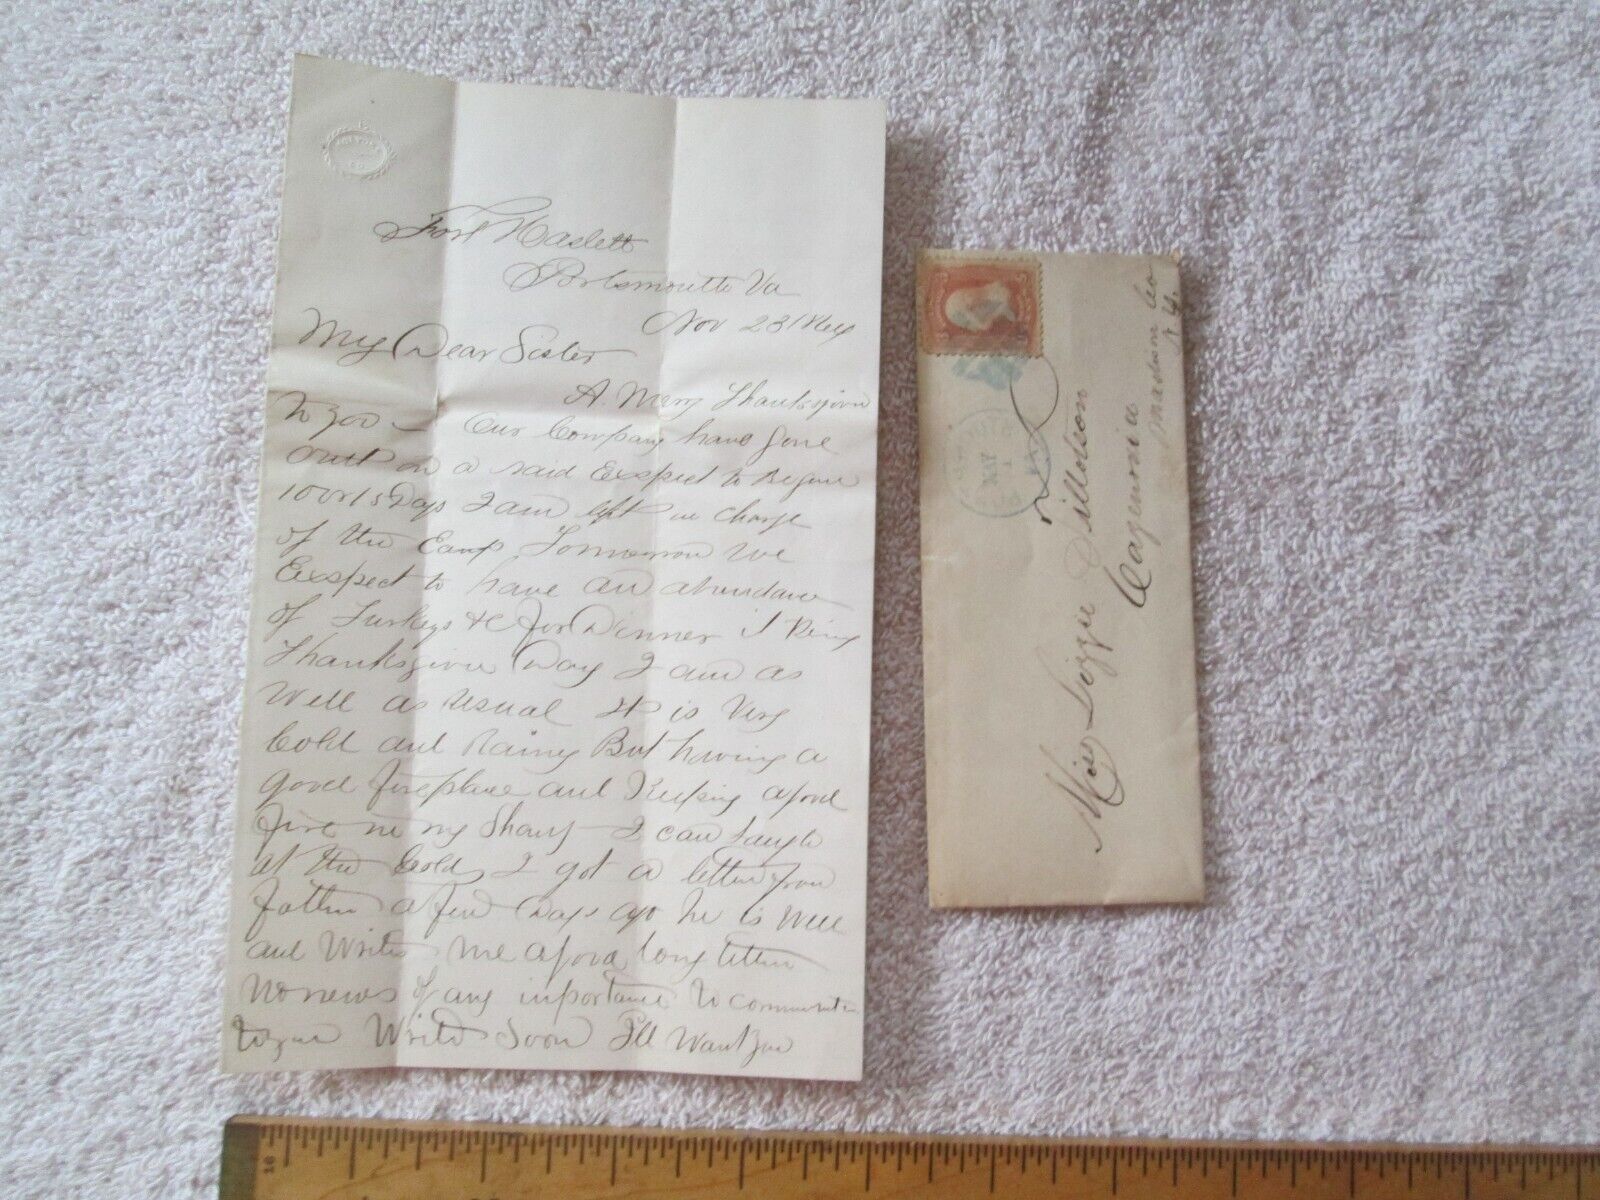 Fort Haslett
Portsmouth Va
Nov 23 1864
My Dear Sister
A Merry Thanksgivin
to you – Our Company have gone
out on a raid Exspect to Begone
10 or 15 Days I am left in charge
of the Camp Tomorrow We
Exspect to have an abundance
of Turkeys &c for Dinner it Being
Thanksgivin Day I am as
Well as usual It is Very
Cold and Rainey But having a
good fireplace and Keeping a good
fire in my Shanty I can Laugh
at the Cold I got a letter from
Father a few Days ago he is Well
and Writes me a good long letter
No news of any inportance to communicate
to you Write Soon I'll Want you
Miss Lizzie Tillotson
Cazenovia
Madison Co
N.Y.
MAY
1
16